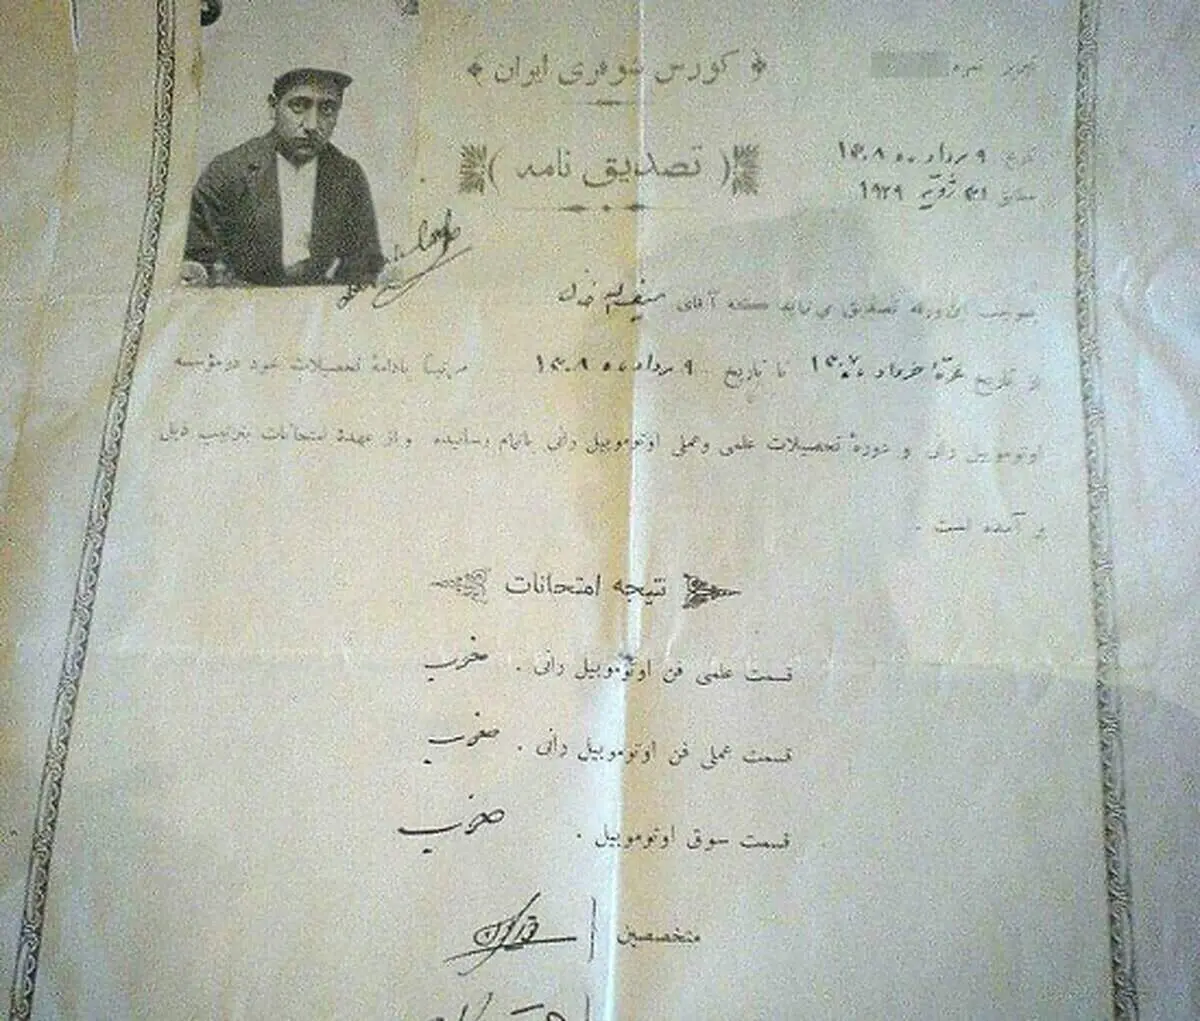 کورس شوفری ایران
نمره
تصدیق نامه
تاریخ ۹ مرداد ماه ۱۳۰۸
مطابق ۳۱ ژویه ۱۹۲۹
بموجب این ورقه تصدیق می نماید که آقای خان
از تاریخ غرّهٔ خرداد ۱۳۰۷ تا تاریخ ۹ مرداد ماه ۱۳۰۸ مرتباً بادامهٔ تحصیلات خود در مؤسسه
اوتوموبیل رانی و دورهٔ تحصیلات علمی وعملی اوتوموبیل رانی باتمام رسانیده و از عهدهٔ امتحانات بترتیب ذیل
بر آمده است .
نتیجه امتحانات
قسمت علمی فن اوتوموبیل رانی .
قسمت عملی فن اوتوموبیل رانی .
قسمت سوق اوتوموبیل .
متخصصین